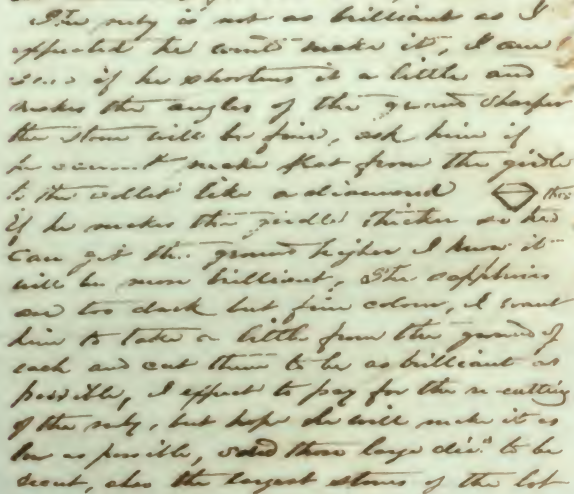 The ruby is not as brilliant as I
expected he would make it, I am
sure if he shortens it a little and
makes the angles of the ground sharper
the stone will be fine, ask him if
he cannot make flat from the girdle
to the collet like a diamond thus
if he makes the girdle thicker so he
can get the ground higher I know it
will be more brilliant, The sapphires
are too dark but fine colour, I want
him to take a little from the ground of
each and cut them to be as brilliant as
possible, I expect to pay for the re-cutting
of the ruby, but hope he will make it as
low as possible, those large dia.ds to be
recut, also the largest stones of the lot